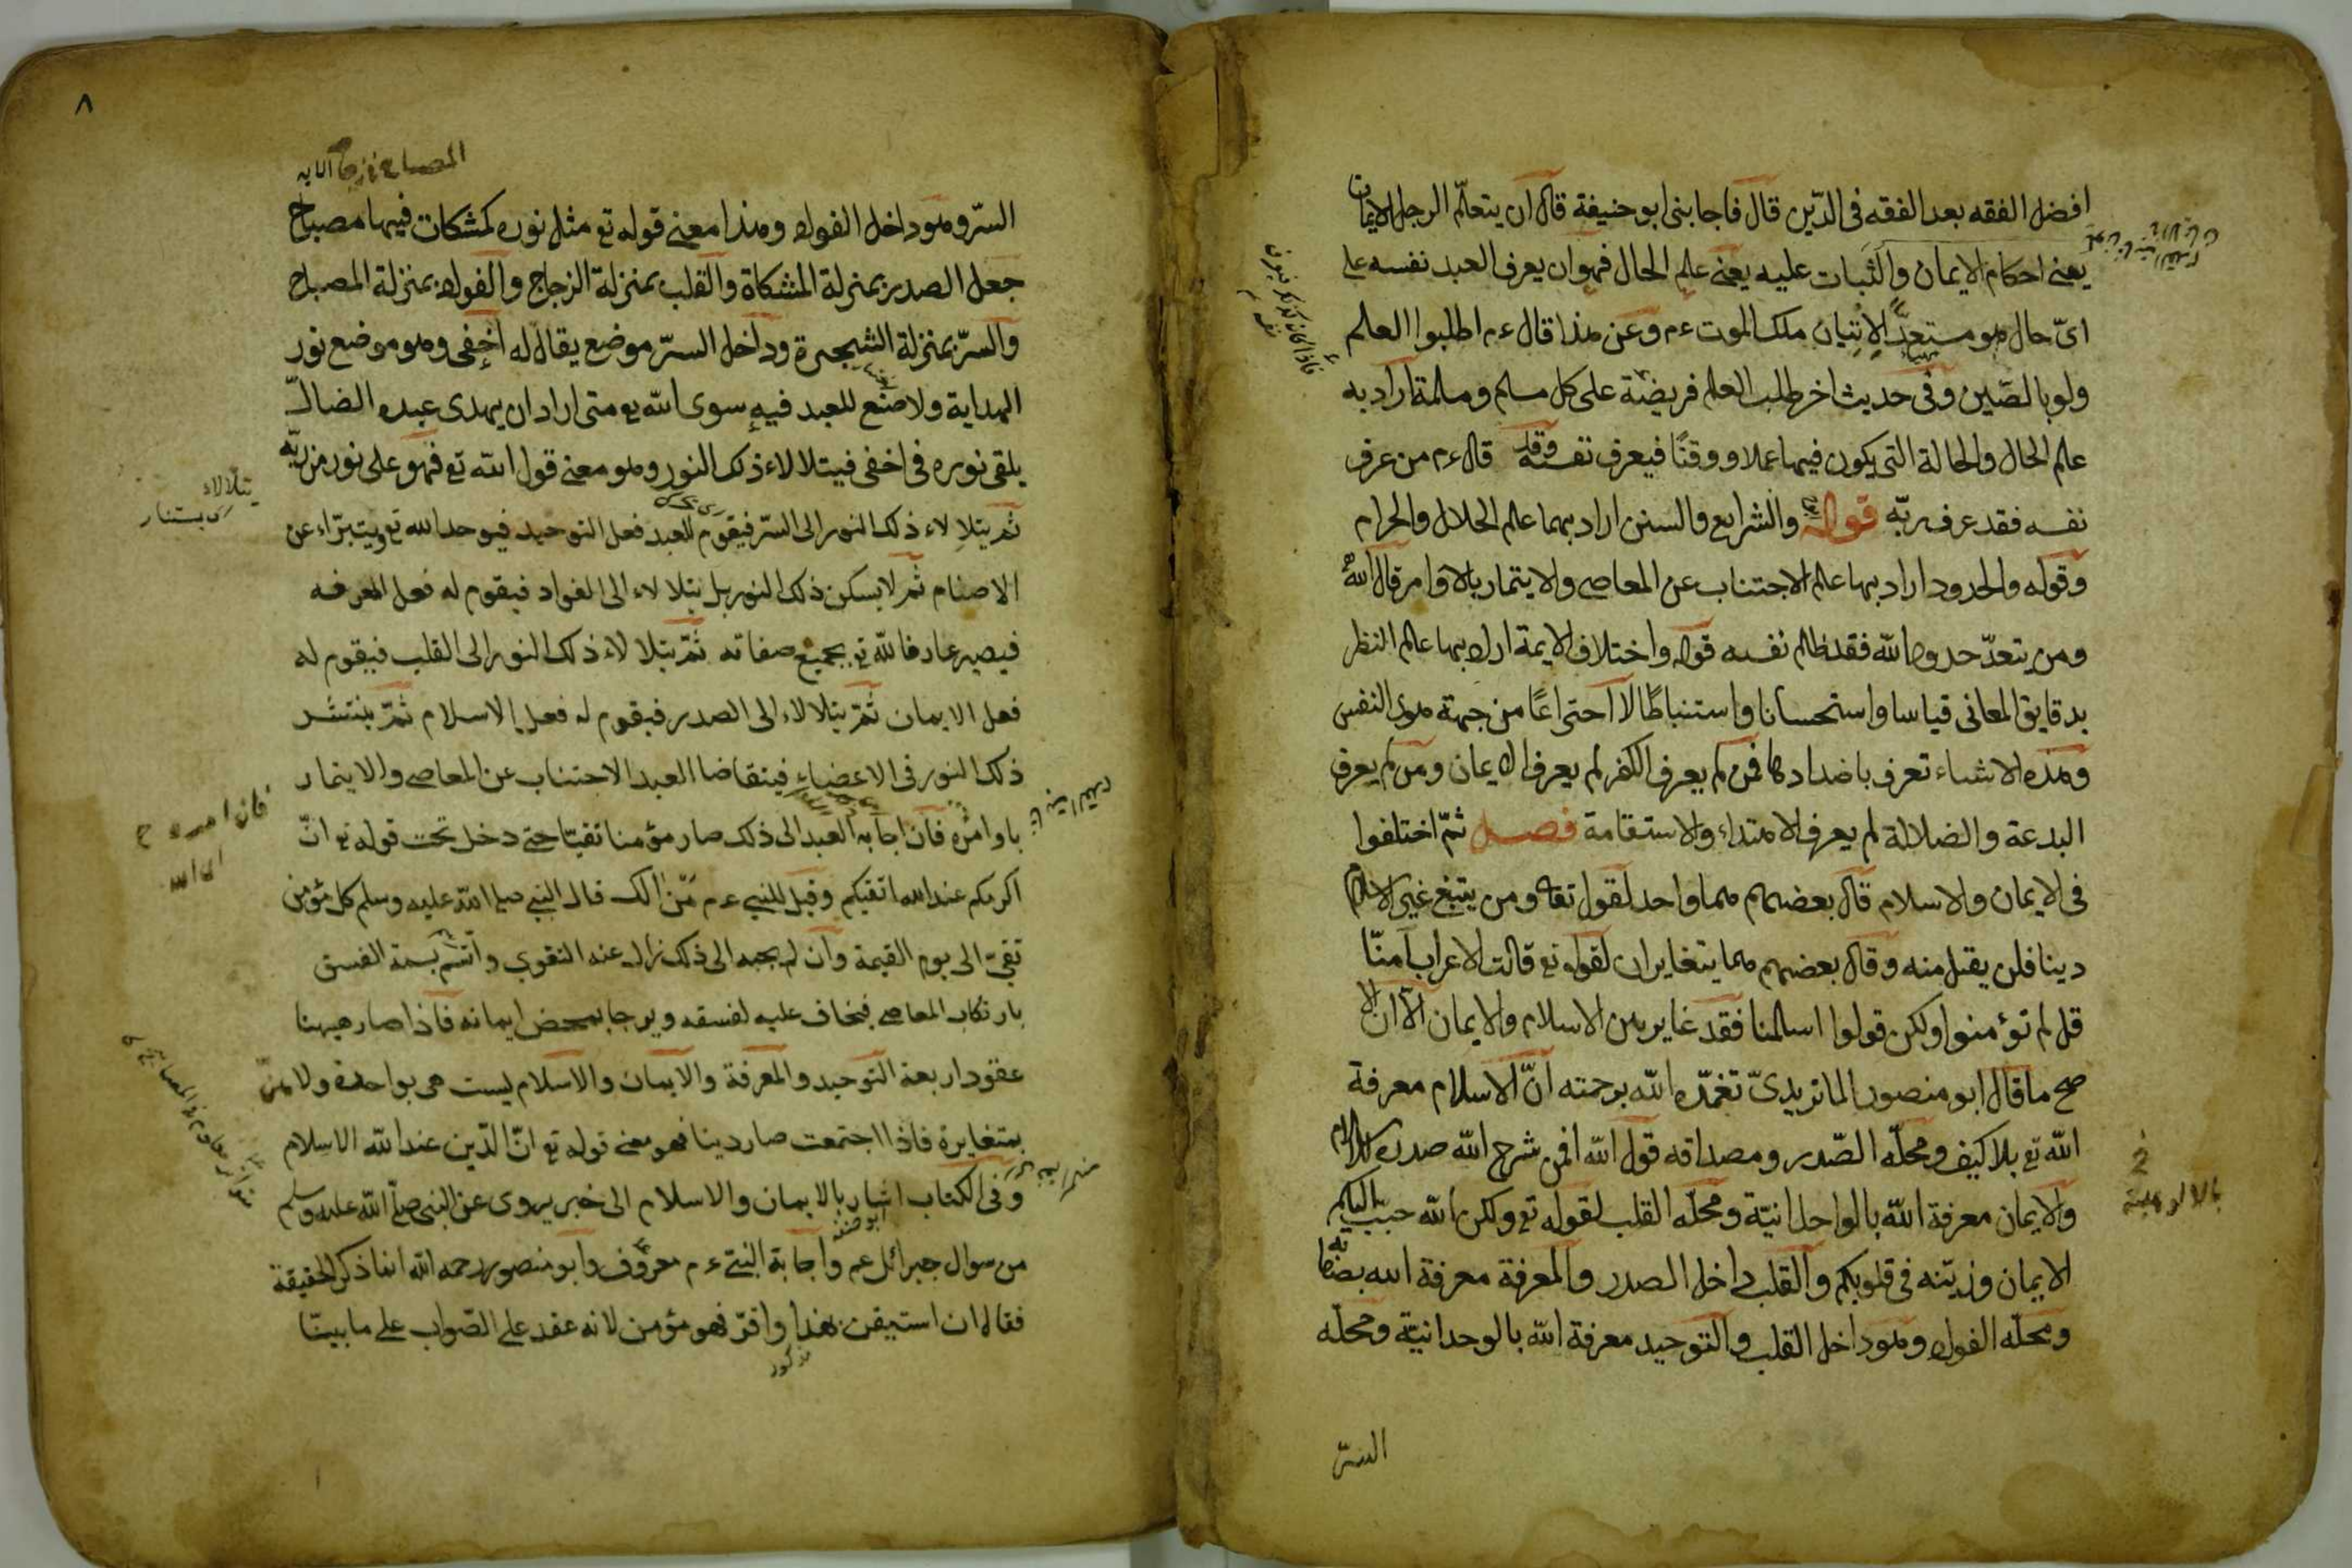 افضل الفقه بعد الفقه فى الدّين قال فاجابنى ابو حنيفة قال ان يتعلّم الرجل الايمان
يعنى احكام الايمان والثبات عليه يعنى علم الحال فهو ان يعرف العبد نفسه على
اىّ حال هو مستعدّ لاتيان ملك الموت ءم وعن هذا قال ءم اطلبوا العلم
ولو بالصّين وفى حديث اخر طلب العلم فريضة على كل مسلم ومسلمة اراد به
علم الحال والحالة التى يكون فيها عملا ووقتًا فيعرف نفسه وقد قال ءم من عرف
نفسه فقد عرف ربّه قوله والشرايع والسنن اراد بهما علم الحلال والحرام
وقوله والحدود اراد بها علم الاجتناب عن المعاصى والايتمار بالاوامر قال الله
ومن يتعدّ حدود الله فقد ظلم نفسه قوله واختلاف الايمة اراد بها علم النظر
بدقايق المعانى قياسا واستحسانا واستنباطًا لا احتراعًا من جهة هوى النفس
وهذه الاشياء تعرف باضدادها فمن لم يعرف الكفر لم يعرف الايمان ومن لم يعرف
البدعة والضلالة لم يعرف الاهتداء والاستقامة فصل ثمّ اختلفوا
فى الايمان والاسلام قال بعضهم هما واحد لقوله تعا ومن يبتغ غير الاسلام
دينا فلن يقبل منه وقال بعضهم هما يتغايران لقوله تع قالت الاعراب آمنّا
قل لم تؤمنوا ولكن قولوا اسلمنا فقد غاير بين الاسلام والايمان الّا ان الا
صح ما قال ابو منصور الماتريدىّ تغمّده الله برحمته انّ الاسلام معرفة
الله تع بلا كيف ومحلّه الصّدر ومصداقه قول الله افمن شرح الله صدره للاسلام
والايمان معرفة الله بالواحدانيّة ومحلّه القلب لقوله تع ولكن الله حبّب اليكم
الايمان وزيّنه فى قلوبكم والقلب داخل الصدر والمعرفة معرفة الله بصفاته
ومحلّه الفواد وهو داخل القلب والتوحيد معرفة الله بالوحدانيّة ومحلّه
السرّ
بالالوهية
٨
المصباح فى زجاجة الايه
السرّ وهو داخل الفواد وهذا معنى قوله تع مثل نوره كمشكات فيها مصباح
جعل الصدر بمنزلة المشكاة والقلب بمنزلة الزجاج والفواد بمنزلة المصباح
والسرّ بمنزلة الشجرة وداخل السرّ موضع يقال له اخفى وهو موضع نور
الهداية ولا صنع للعبد فيه سوى الله تع متى اراد ان يهدى عبده الضالّ
يلقى نوره فى اخفى فيتلالاء ذلك النور وهو معنى قول الله تع فهو على نور من ربّه
ثمّ يتلالاء ذلك النور الى السرّ فيقوم للعبد فعل التوحيد فيوحد الله تع ويتبرّاء عن
الاصنام ثمّ لا يسكن ذلك النور بل يتلالاء الى الفواد فيقوم له فعل المعرفه
فيصير عارفا لله تع بجميع صفاته ثمّ يتلالاء ذلك النور الى القلب فيقوم له
فعل الايمان ثمّ يتلالاء الى الصدر فيقوم له فعل الاسلام ثمّ ينتشر
ذلك النور فى الاعضاء فيتقاضا العبد الاجتناب عن المعاصى والايتمار
باوامره فان اجابه العبد الى ذلك صار مؤمنا تقيّا حتى دخل تحت قوله تع انّ
اكرمكم عند الله اتقيكم وقيل للنبى ءم مَن الك قال النبى صلى الله عليه وسلم كل مؤمن
تقىّ الى يوم القيمة وان لم يجبه الى ذلك زال عنه التقوى واتّسم بسمة الفسق
بارتكاب المعاصى فيخاف عليه لفسقه ويرجا بمحض ايمانه فاذا صار هيهنا
عقود اربعة التوحيد والمعرفة والايمان والاسلام ليست هى بواحدة ولا من
بمتغايرة فاذا اجتمعت صار دينا فهو معنى قوله تع انّ الدّين عند الله الاسلام
وفى الكتاب اشار بالايمان والاسلام الى خبر يروى عن النبى صلّى الله عليه وسلم
من سوال جبرائل عم واجابة النبى ءم معروف وابو منصور رحمه الله انما ذكر الحقيقة
فقال ان استيقن بهذا واقرّ فهو مؤمن لانه عقد على الصّواب على ما بينّا
يتلالاء
اى يستنار
فان امره
اى الله
ابو حنيفة
مذكور